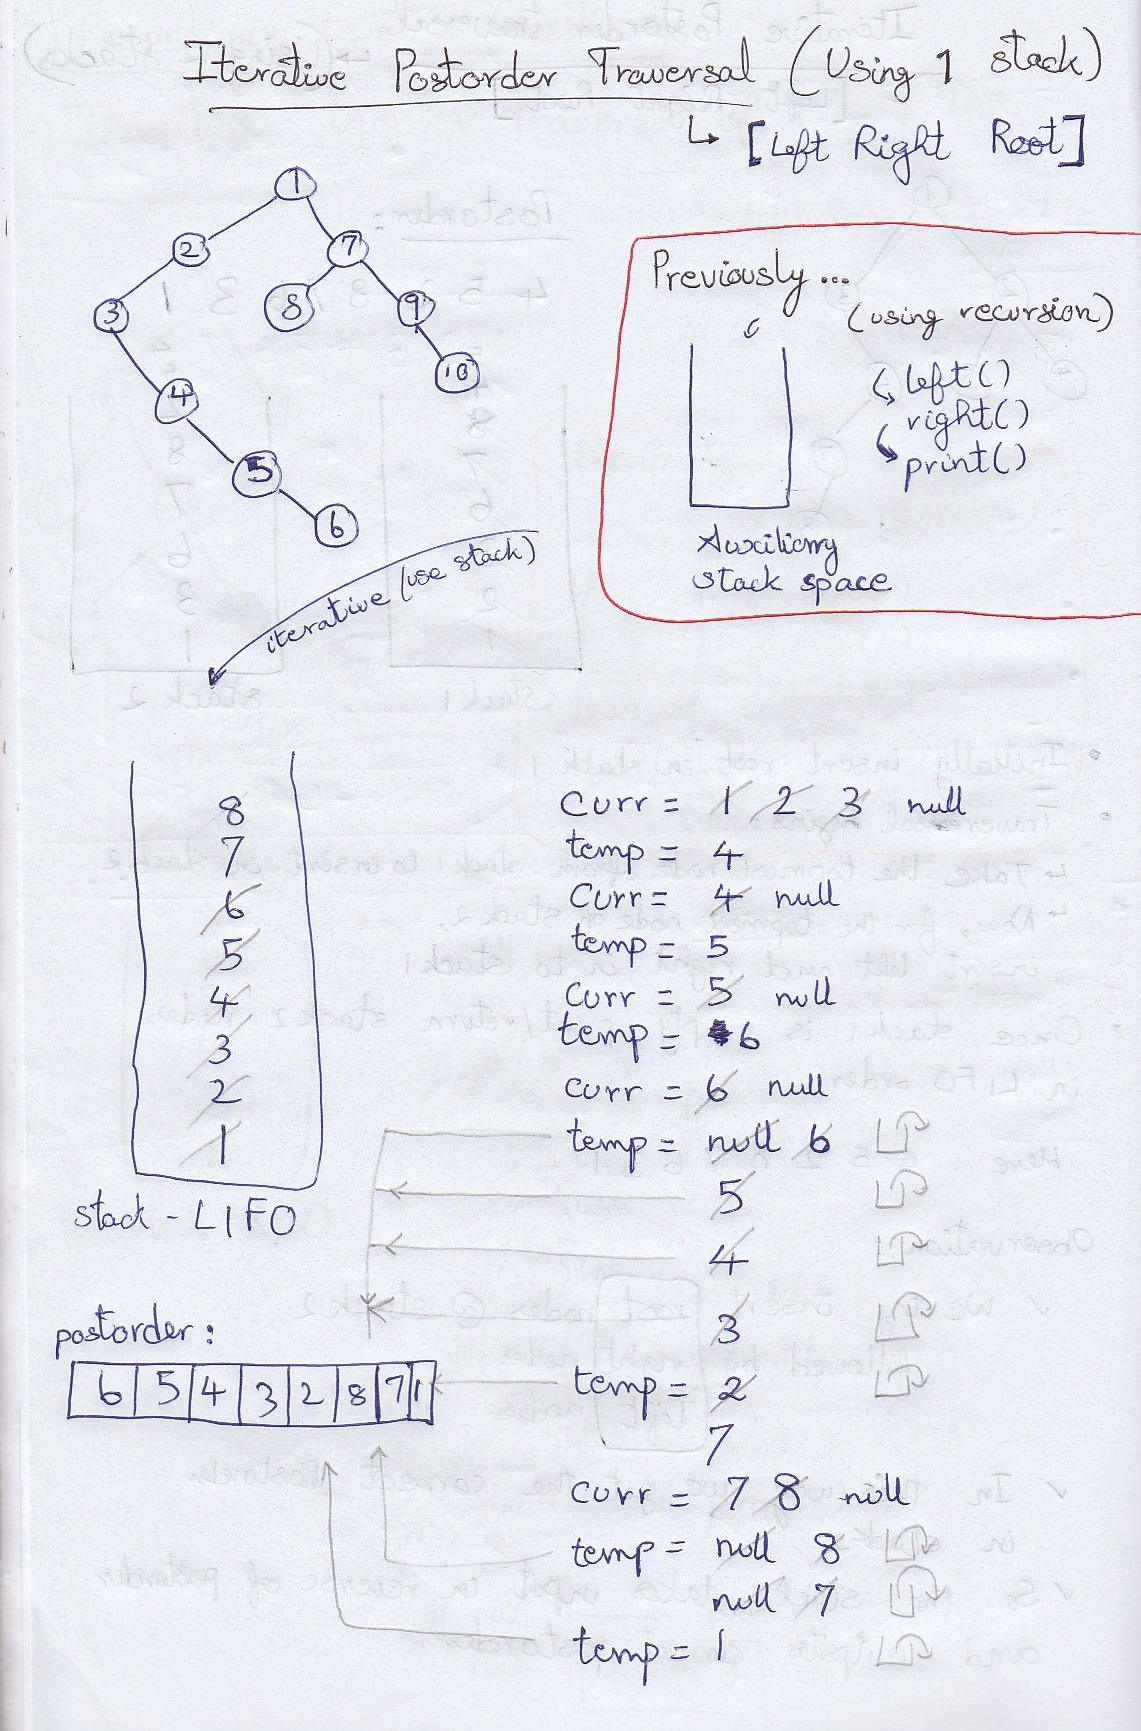 Iterative Postorder Traversal (Using 1 stack)
↳ [Left Right Root]
1
2 7
3 8 9
4 10
5
6
Previously...
(using recursion)
left()
right()
print()
Auxiliary
stack space
iterative (use stack)
8
7
6
5
4
3
2
1
stack - LIFO
curr = 1 2 3 null
temp = 4
curr = 4 null
temp = 5
curr = 5 null
temp = 6
curr = 6 null
temp = null 6
5
4
3
temp = 2
7
curr = 7 8 null
temp = null 8
null 7
temp = 1
postorder:
6 5 4 3 2 8 7 1